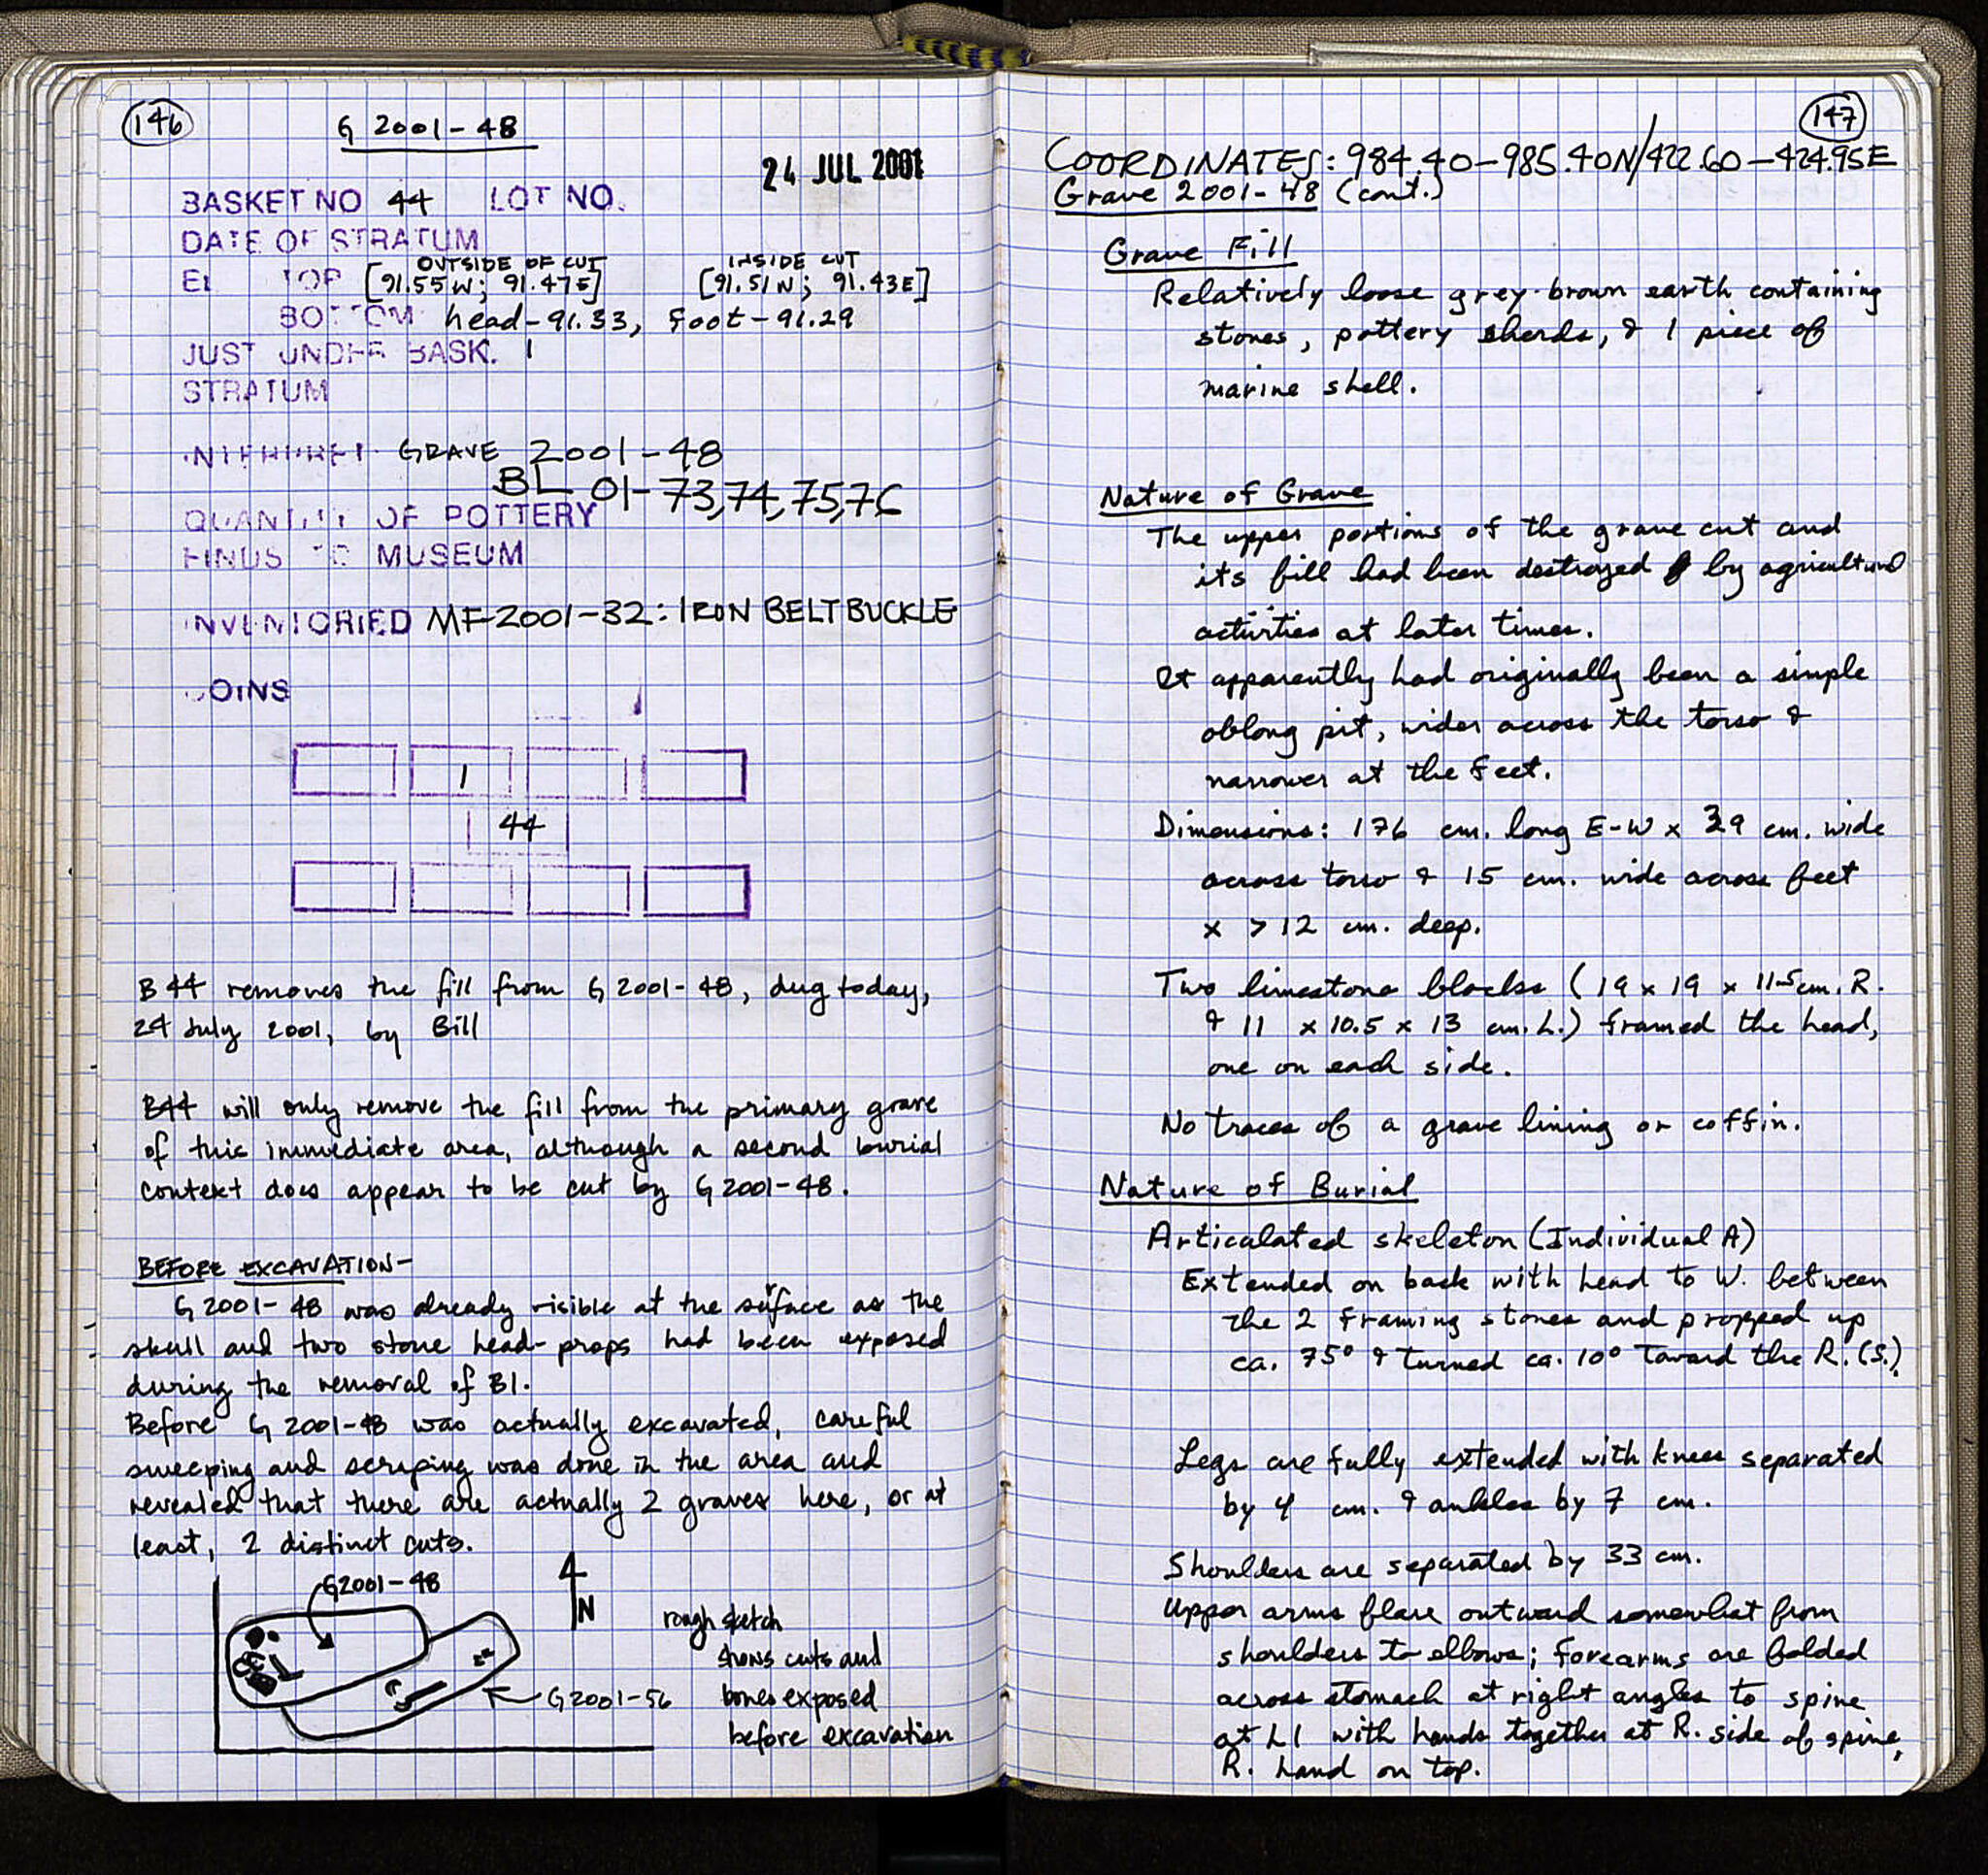 146
G 2001-48
24 JUL 2001
BASKET NO 44 LOT NO.
DATE OF STRATUM
OUTSIDE OF CUT INSIDE CUT
EL TOP [91.55W; 91.47E] [91.51N; 91.43E]
BOTTOM head-91.33, foot-91.29
JUST UNDER BASK. 1
STRATUM
INTERPRET GRAVE 2001-48
BL 01-73,74,75,76
QUANTITY OF POTTERY
FINDS TO MUSEUM
INVENTORIED MF-2001-32: IRON BELTBUCKLE
COINS
1
44
B44 removes the fill from G 2001-48, dug today,
24 July 2001, by Bill
B44 will only remove the fill from the primary grave
of this immediate area, although a second burial
context does appear to be cut by G 2001-48.
BEFORE EXCAVATION-
G 2001-48 was already visible at the surface as the
skull and two stone head-props had been exposed
during the removal of B1.
Before G 2001-48 was actually excavated, careful
sweeping and scraping was done in the area and
revealed that there are actually 2 graves here, or at
least, 2 distinct cuts.
G2001-48
N
rough sketch
shows cuts and
G2001-56
bones exposed
before excavation
147
COORDINATES: 984.40-985.40N/422.60-424.95E
Grave 2001-48 (cont.)
Grave Fill
Relatively loose grey-brown earth containing
stones, pottery sherds, & 1 piece of
marine shell.
Nature of Grave
The upper portions of the grave cut and
its fill had been destroyed by agricultural
activities at later times.
It apparently had originally been a simple
oblong pit, wider across the torso &
narrower at the feet.
Dimensions: 176 cm. long E-W x 39 cm. wide
across torso & 15 cm. wide across feet
x > 12 cm. deep.
Two limestone blocks (19 x 19 x 11.5cm. R.
& 11 x 10.5 x 13 cm. L.) framed the head,
one on each side.
No traces of a grave lining or coffin.
Nature of Burial
Articulated skeleton (Individual A)
Extended on back with head to W. between
the 2 framing stones and propped up
ca. 75° & turned ca. 10° toward the R. (S.).
Legs are fully extended with knees separated
by 4 cm. & ankles by 7 cm.
Shoulders are separated by 33 cm.
Upper arms flare outward somewhat from
shoulders to elbows; forearms are folded
across stomach at right angles to spine
at L1 with hands together at R. side of spine,
R. hand on top.